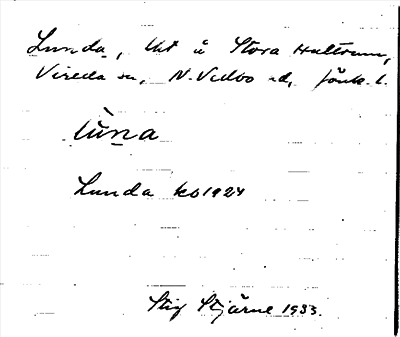 Lunda, tht å Stora Hultrum,
Vireda sn, N. Vedbo hd, Jönk. l.
lùna
Lunda kb 1924
Stig Stjärne 1933.